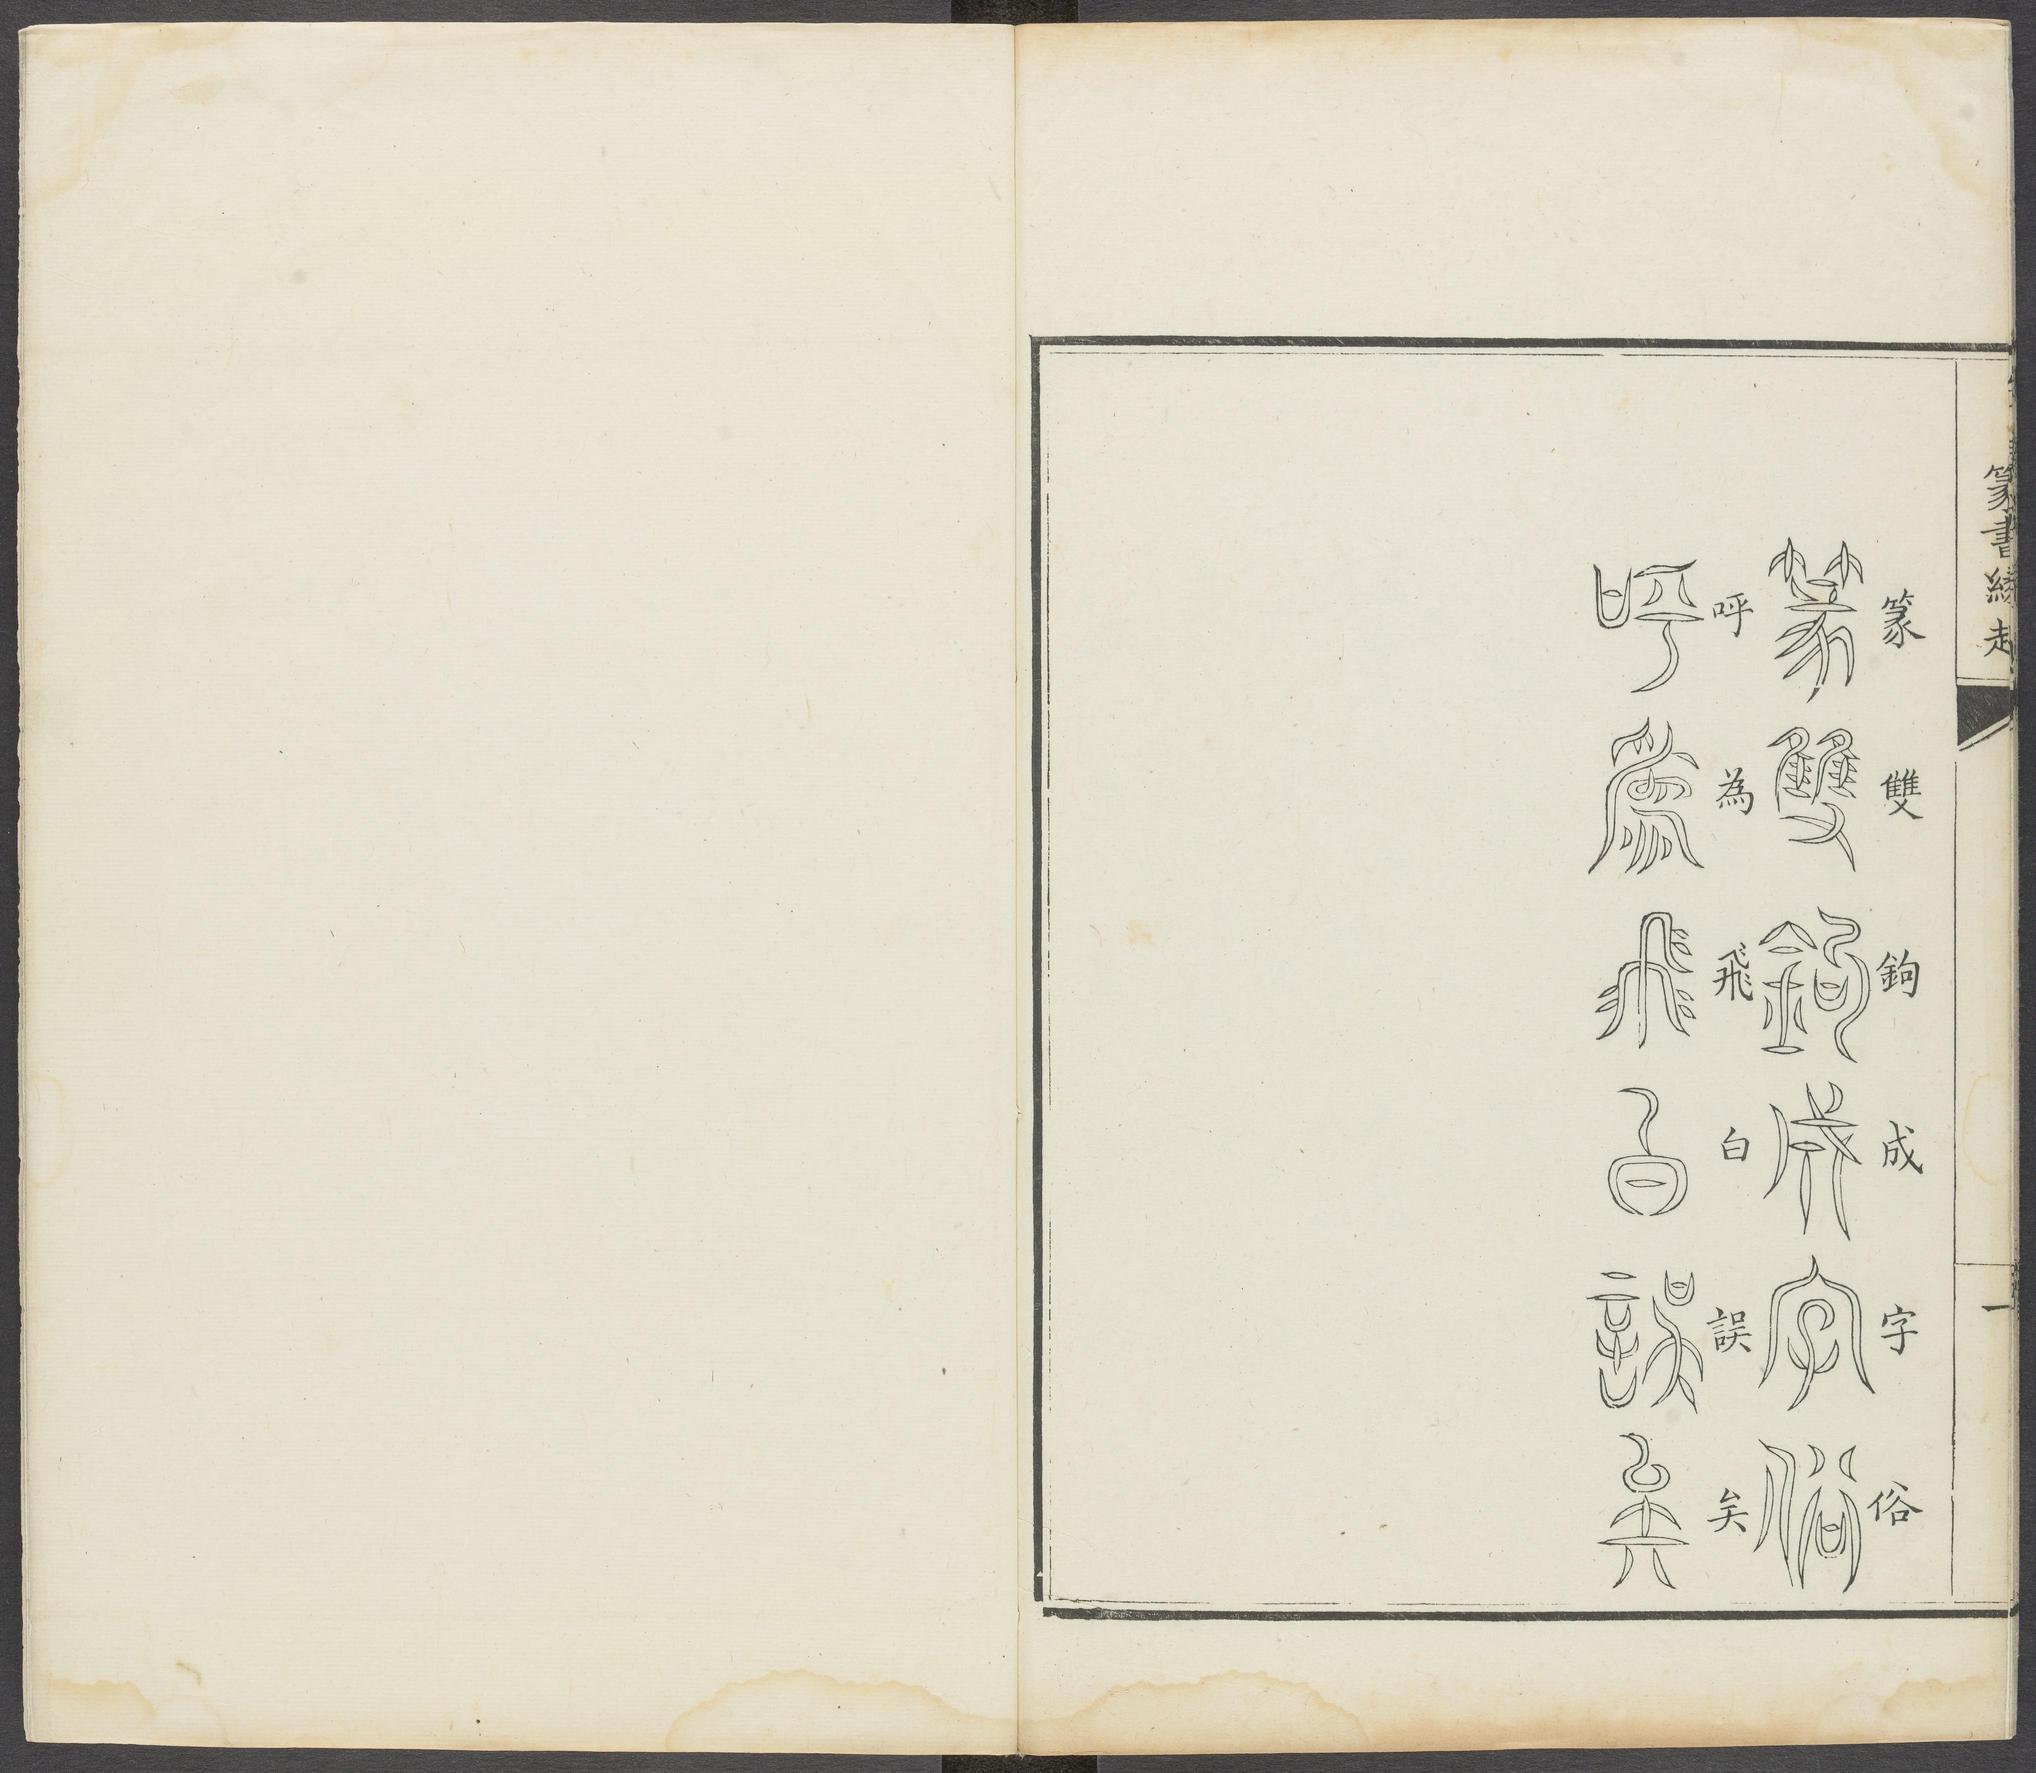 篆書緣起
一
篆雙鉤成字俗
篆雙鉤成字俗
呼為飛白誤矣
呼為飛白誤矣